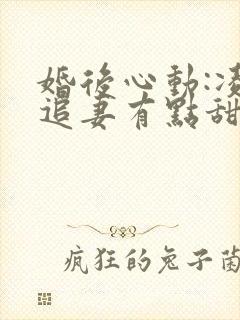 婚後心動:凌
追妻有點甜
瘋狂的兔子菌